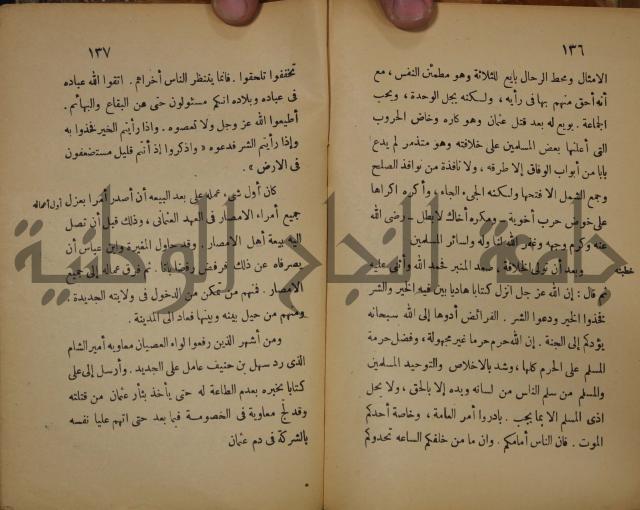 ١٣٦
الامثال ومحط الرحال بايع للثلاثة وهو مطمئن النفس ، مع
أنه أحق منهم بها فى رأيه ، ولسكنه يجل الوحدة ، ويحب
الجماعة . بويع له بعد قتل عثمان وهو كاره وخاض الحروب
التى أعلنها بعض المسلمين على خلافته وهو متذمر لم يدع
بابا من أبواب الوفاق إلا طرقه ، ولا نافذة من نوافذ الصلح
وجمع الشمل الا فتحها ولسكنه الجىء الجاء ، وأكره اكراها
على خوض حرب أخوية — ومكره أخاك لا بطل — رضى الله
عنه وكرم وجهه وغفر الله لنا وله ولسائر المسلمين
خطبته
وبعد أن تولى الخلافة . صعد المنبر فحمد الله وأثنى عليه
ثم قال : إن الله عز جل انزل كتابا هاديا بين فيه الخير والشر
فخذوا الخير ودعوا الشر . الفرائض أدوها إلى الله سبحانه
يؤدكم إلى الجنة . إن الله حرم حرما غير مجهولة ، وفضل حرمة
المسلم على الحرم كلها ، وشد بالاخلاص والتوحيد المسلمين
والمسلم من سلم الناس من لسانه ويده إلا بالحق ، ولا يحل
اذى المسلم الا بما يجب . بادروا أمر العامة ، وخاصة أحدكم
الموت . فان الناس أمامكم . وان ما من خلفكم الساعه تحدوكم
١٣٧
تخففوا تلحقوا . فانما ينتظر الناس أخراهم . اتقوا الله عباده
فى عباده وبلاده انكم مسئولون حتى هن البقاع والبهائم .
أطيعوا الله عز وجل ولا تعصوه . واذا رأيتم الخير فخذوا به
وإذا رأيتم الشر فدعوه « واذكروا إذ أنتم قليل مستضعفون
فى الارض » .
أول أعماله
كان أول شىء عمله على بعد البيعه أن أصدر أمرا بعزل
جميع أمراء الامصار فى العهد العثمانى ، وذلك قبل أن تصل
اليه بيعة أهل الامصار . وقد حاول المغيرة وابن عباس أن
يصرفاه عن ذلك فرفض رفضا باتا . ثم فرق عماله إلى جميع
الامصار . فمنهم من تمكن من الدخول فى ولايته الجديدة .
ومنهم من حيل بينه وبينها فعاد الى المدينة .
ومن أشهر الذين رفعوا لواء العصيان معاويه أمير الشام
الذى رد سهل بن حنيف عامل على الجديد . وأرسل إلى على
كتابا يخبره بعدم الطاعة له حتى يأخذ بثأر عثمان من قتلته
وقد لج معاوية فى الخصومة فيما بعد حتى اتهم عليا نفسه
بالشركة فى دم عثمان
جامعة النجاح الوطنية